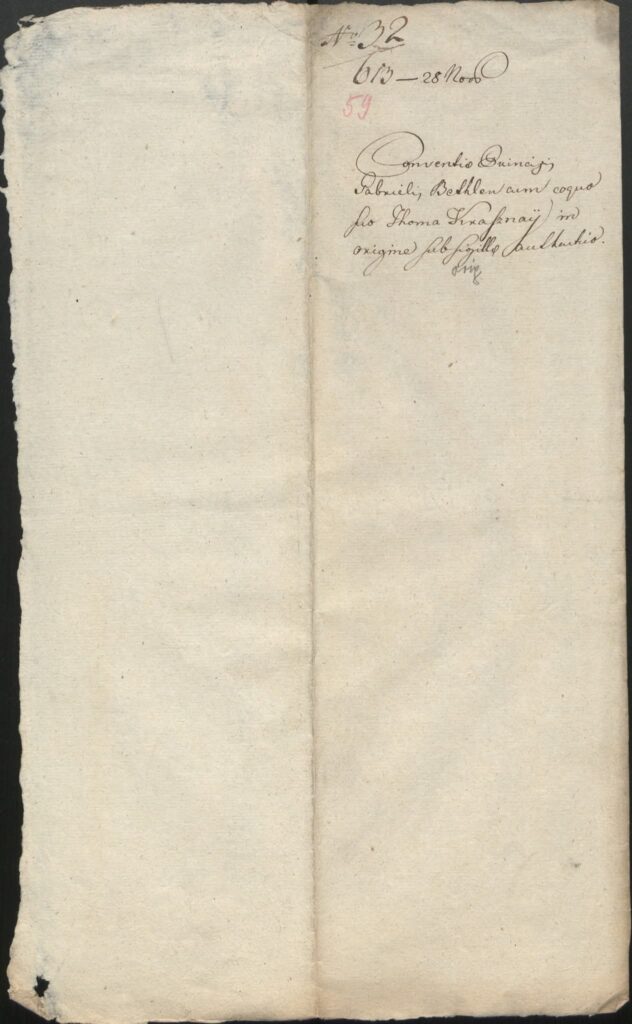 Nro 32
613 — 28 Nov
59
Conventio Principis
Gabrielis Bethlen cum coquo
suo Thoma Krasznaÿ in
origine sub sigillo authentico.
orig